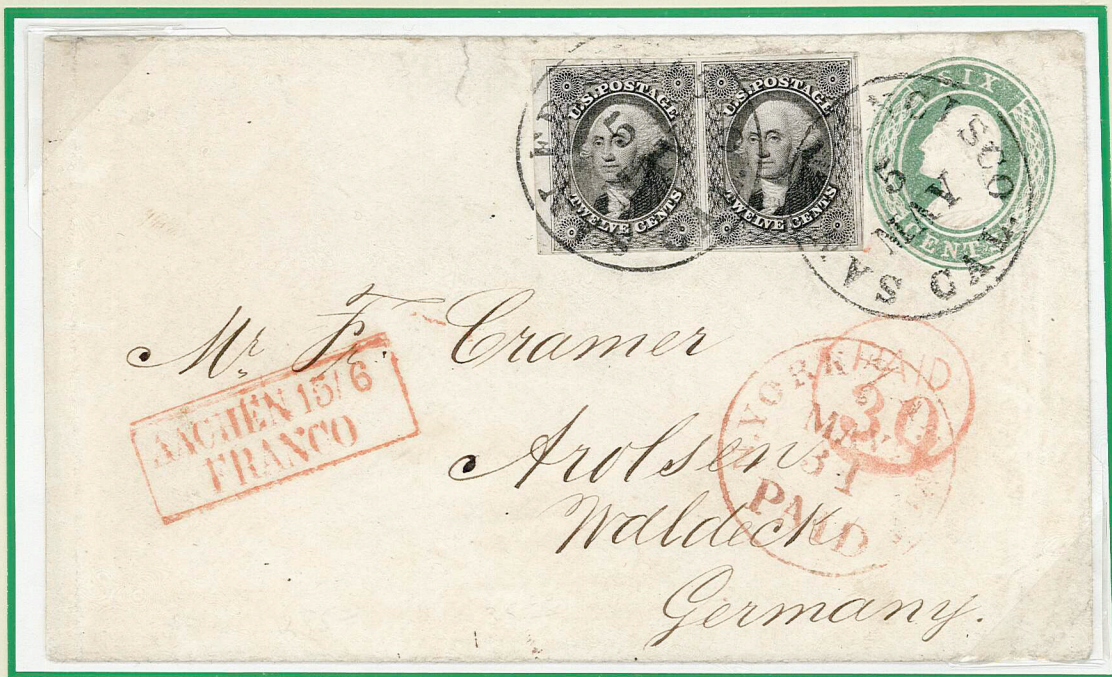 U.S. POSTAGE
TWELVE CENTS
U.S. POSTAGE
TWELVE CENTS
SIX
CENTS
5
CAL
MAY
Mr. Fr. Cramer
AACHEN 15/6
FRANCO
PAID
30
YORK
MAY
31
PAID
Arolsen
Waldeck
Germany.